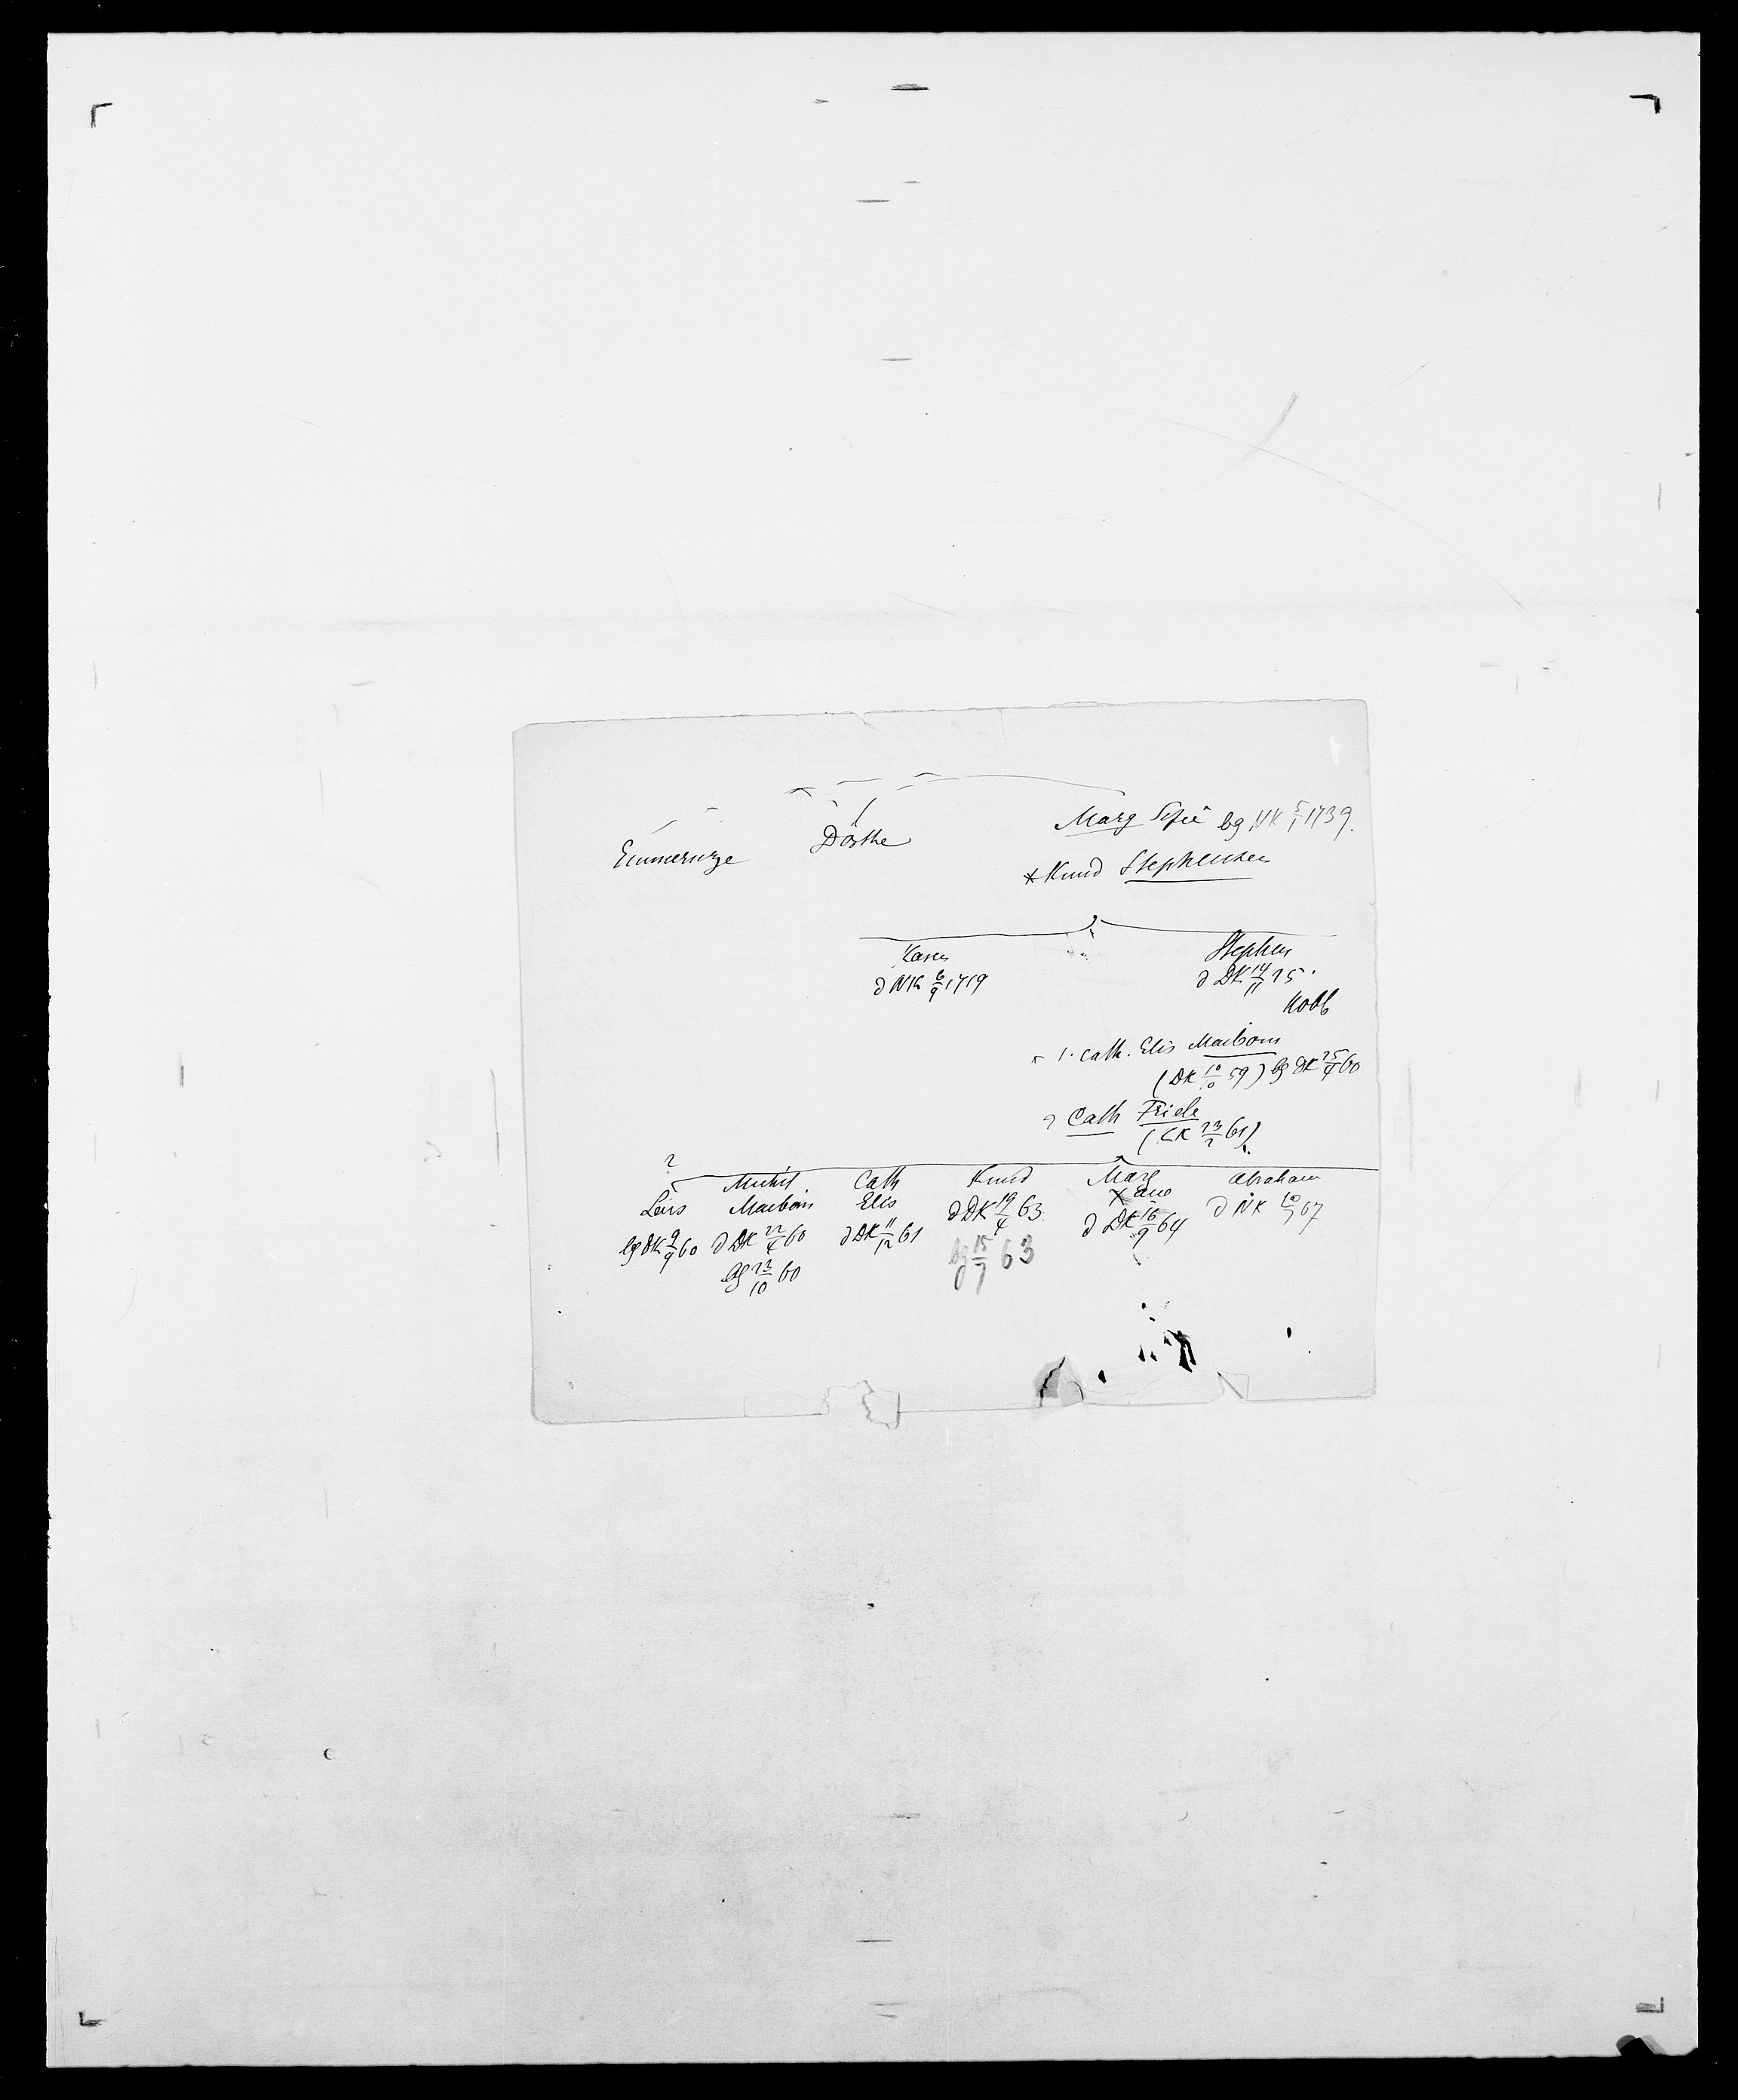 Emmerenze
Dorthe
Marg Sofie bg NK 5/1 1739.
* Knud Stephensen
Karen
d NK 6/9 1719
Stephen
d DK 14/11 25.
Kobb
1. Cath. Elis Maibom
(DK 10/10 59) bg DK 25/4 60
2 Cath Friele
(CK 23/2 61)
?
Lars
bg DK 9/9 60
Michel
Maibom
d DK 22/4 60
bg 23/10 60
Cath
Elis
d DK 11/12 61
Knud
d DK 19/4 63
bg 15/7 63
Marg
d DK 16/9 64
Abraham
d NK 10/7 67